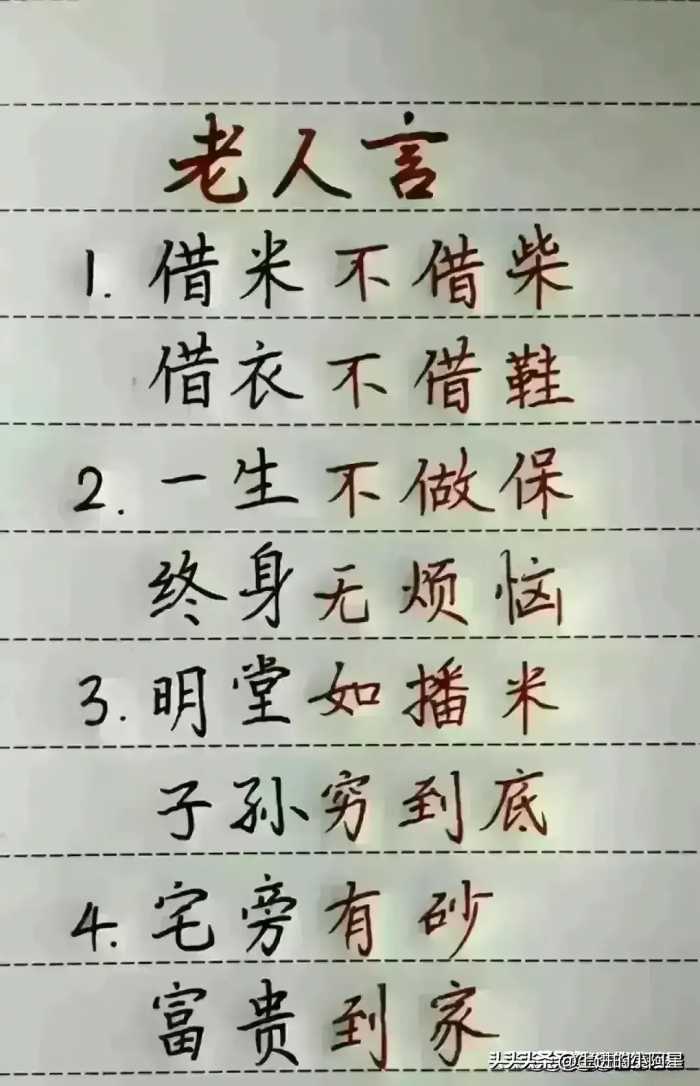 老人言
1. 借米不借柴
借衣不借鞋
2. 一生不做保
终身无烦恼
3. 明堂如播米
子孙穷到底
4. 宅旁有砂
富贵到家